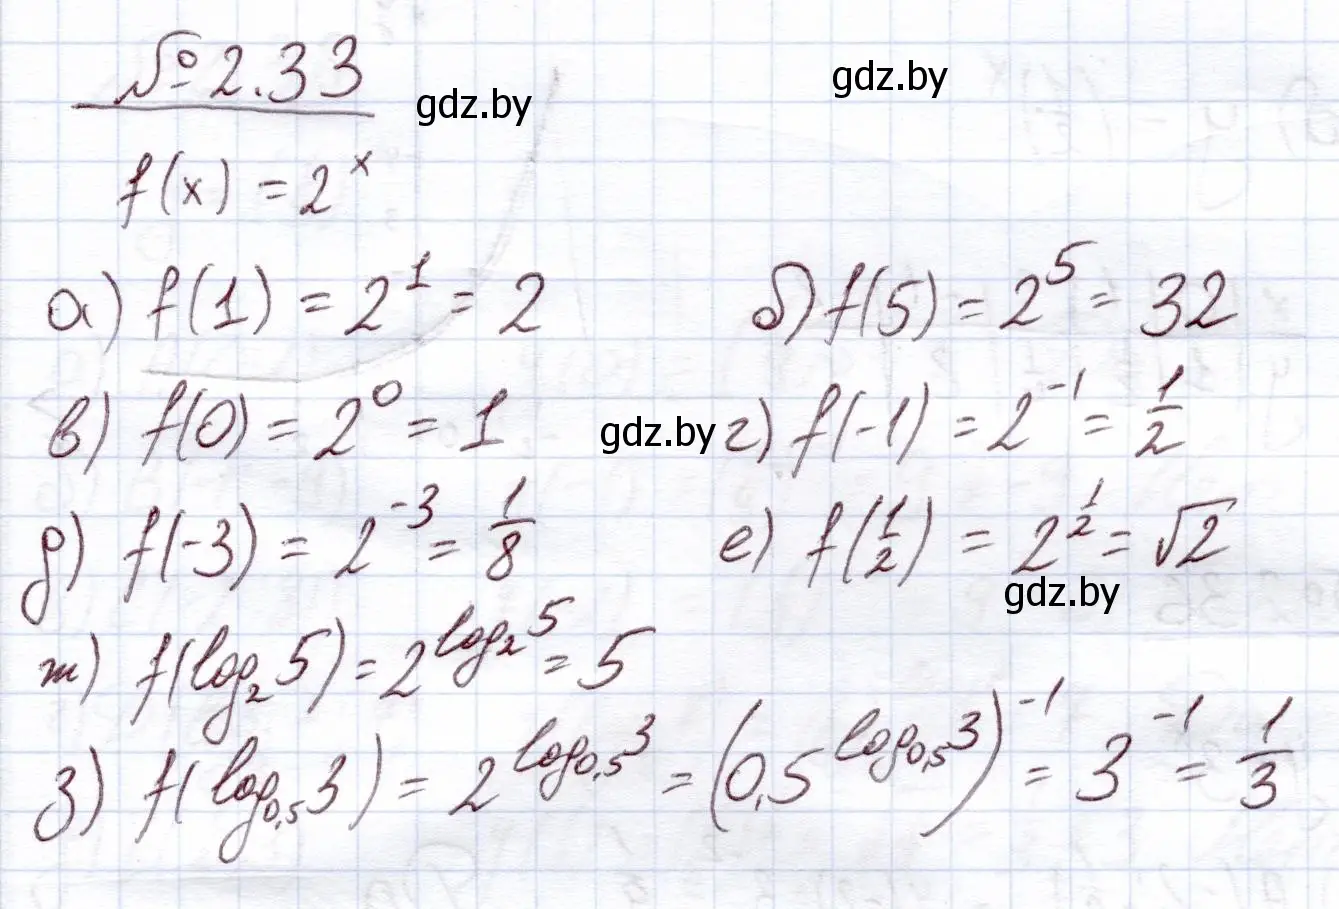 № 2.33
gdz.by
gdz.by
f(x) = 2^x
а) f(1) = 2^1 = 2
б) f(5) = 2^5 = 32
в) f(0) = 2^0 = 1
gdz.by
г) f(-1) = 2^-1 = 1/2
д) f(-3) = 2^-3 = 1/8
е) f(1/2) = 2^1/2 = √2
gdz.by
ж) f(log₂ 5) = 2^log₂ 5 = 5
з) f(log₀,₅ 3) = 2^log₀,₅ 3 = (0,5^log₀,₅ 3)^-1 = 3^-1 = 1/3